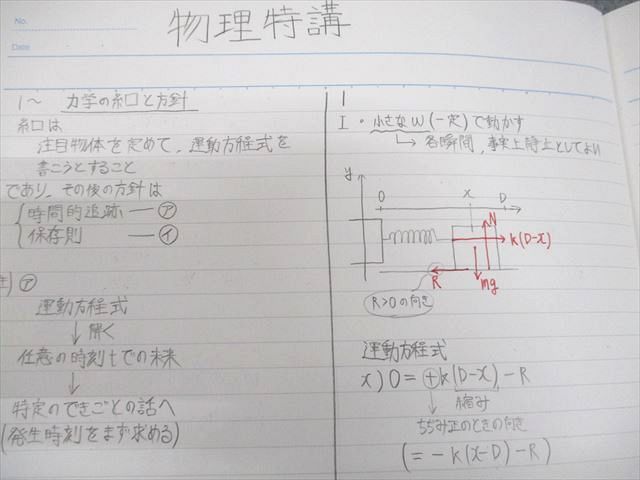 No.
Date
物理特講
1〜 力学の糸口と方針
糸口は
注目物体を定めて、運動方程式を
書こうとすること
であり、その後の方針は
時間的追跡 ― ㋐
保存則 ― ㋑
㋐
運動方程式
↓ 解く
任意の時刻tでの未来
↓
特定のできごとの話へ
(発生時刻をまず求める)
1
I ・小さなω(一定)で動かす
↳ 各瞬間、事実上静止としてよい
y
0 x D
N
k(D-x)
R mg
R>0の向き
運動方程式
x) 0 = ⊕k(D-x) - R
縮み
ちぢみ正のときの向き
(= -k(x-D) - R)